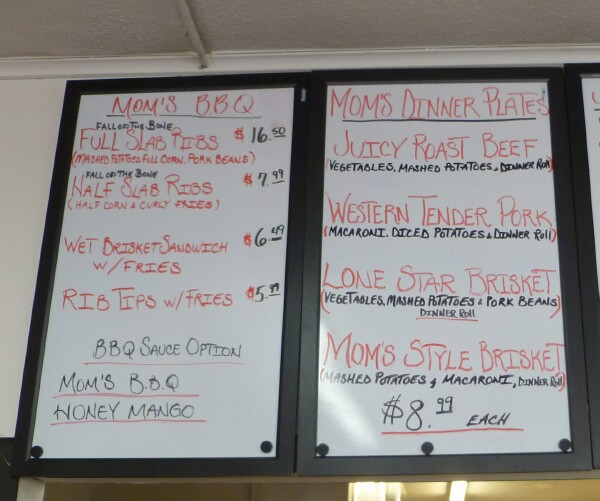 MOM'S B.B.Q
FALL OF THE BONE
FULL SLAB RIBS $16.50
(MASHED POTATOES FULL CORN, PORK BEANS)
FALL OF THE BONE
HALF SLAB RIBS $7.99
(HALF CORN & CURLY FRIES)
WET BRISKET SANDWICH $6.49
W/FRIES
RIB TIPS W/FRIES $5.99
BBQ SAUCE OPTION
MOM'S B.B.Q
HONEY MANGO
MOM'S DINNER PLATES
JUICY ROAST BEEF
(VEGETABLES, MASHED POTATOES & DINNER Roll)
WESTERN TENDER PORK
(MACARONI, DICED POTATOES & DINNER Roll)
LONE STAR BRISKET
(VEGETABLES, MASHED POTATOES & PORK BEANS)
DINNER Roll
MOM'S STYLE BRISKET
(MASHED POTATOES & MACARONI, DINNER Roll)
$8.99 EACH